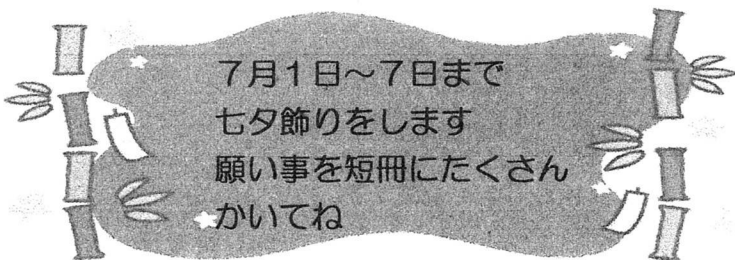 7月1日～7日まで
七夕飾りをします
願い事を短冊にたくさん
かいてね